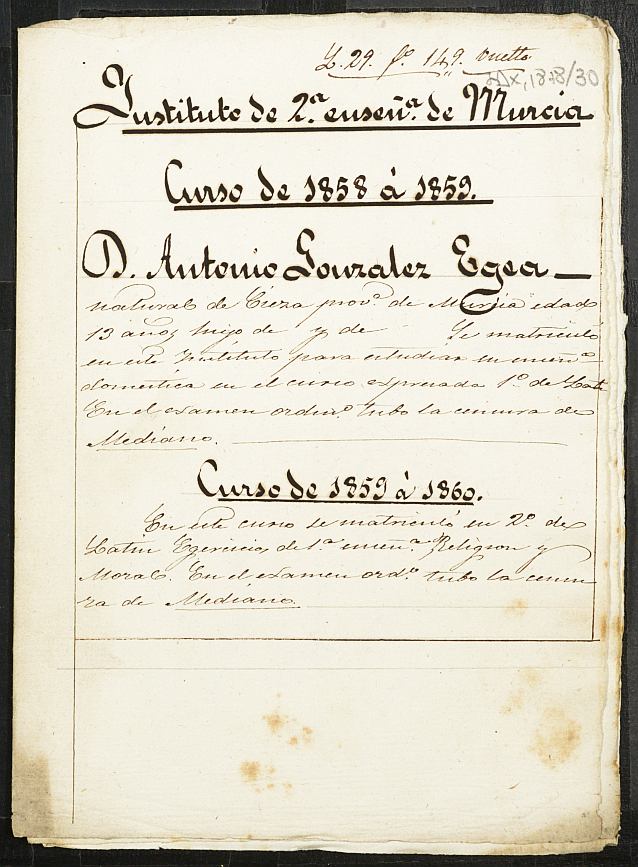 L. 29. fº 149. vuelto
1878/30
Instituto de 2.ª enseñ.ª de Murcia
Curso de 1858 á 1859.
D. Antonio Gonzalez Egea
natural de Cieza prov.ª de Murcia edad
13 años hijo de y de Se matriculó
en este Instituto para estudiar en enseñ.ª
domestica en el curso expresado 1.º de Lat.
En el examen ordin.º tubo la censura de
Mediano.
Curso de 1859 á 1860.
En este curso se matriculó en 2.º de
Latin Egercicios de 1.ª enseñ.ª Religion y
Moral. En el examen ord.º tubo la censu
ra de Mediano.